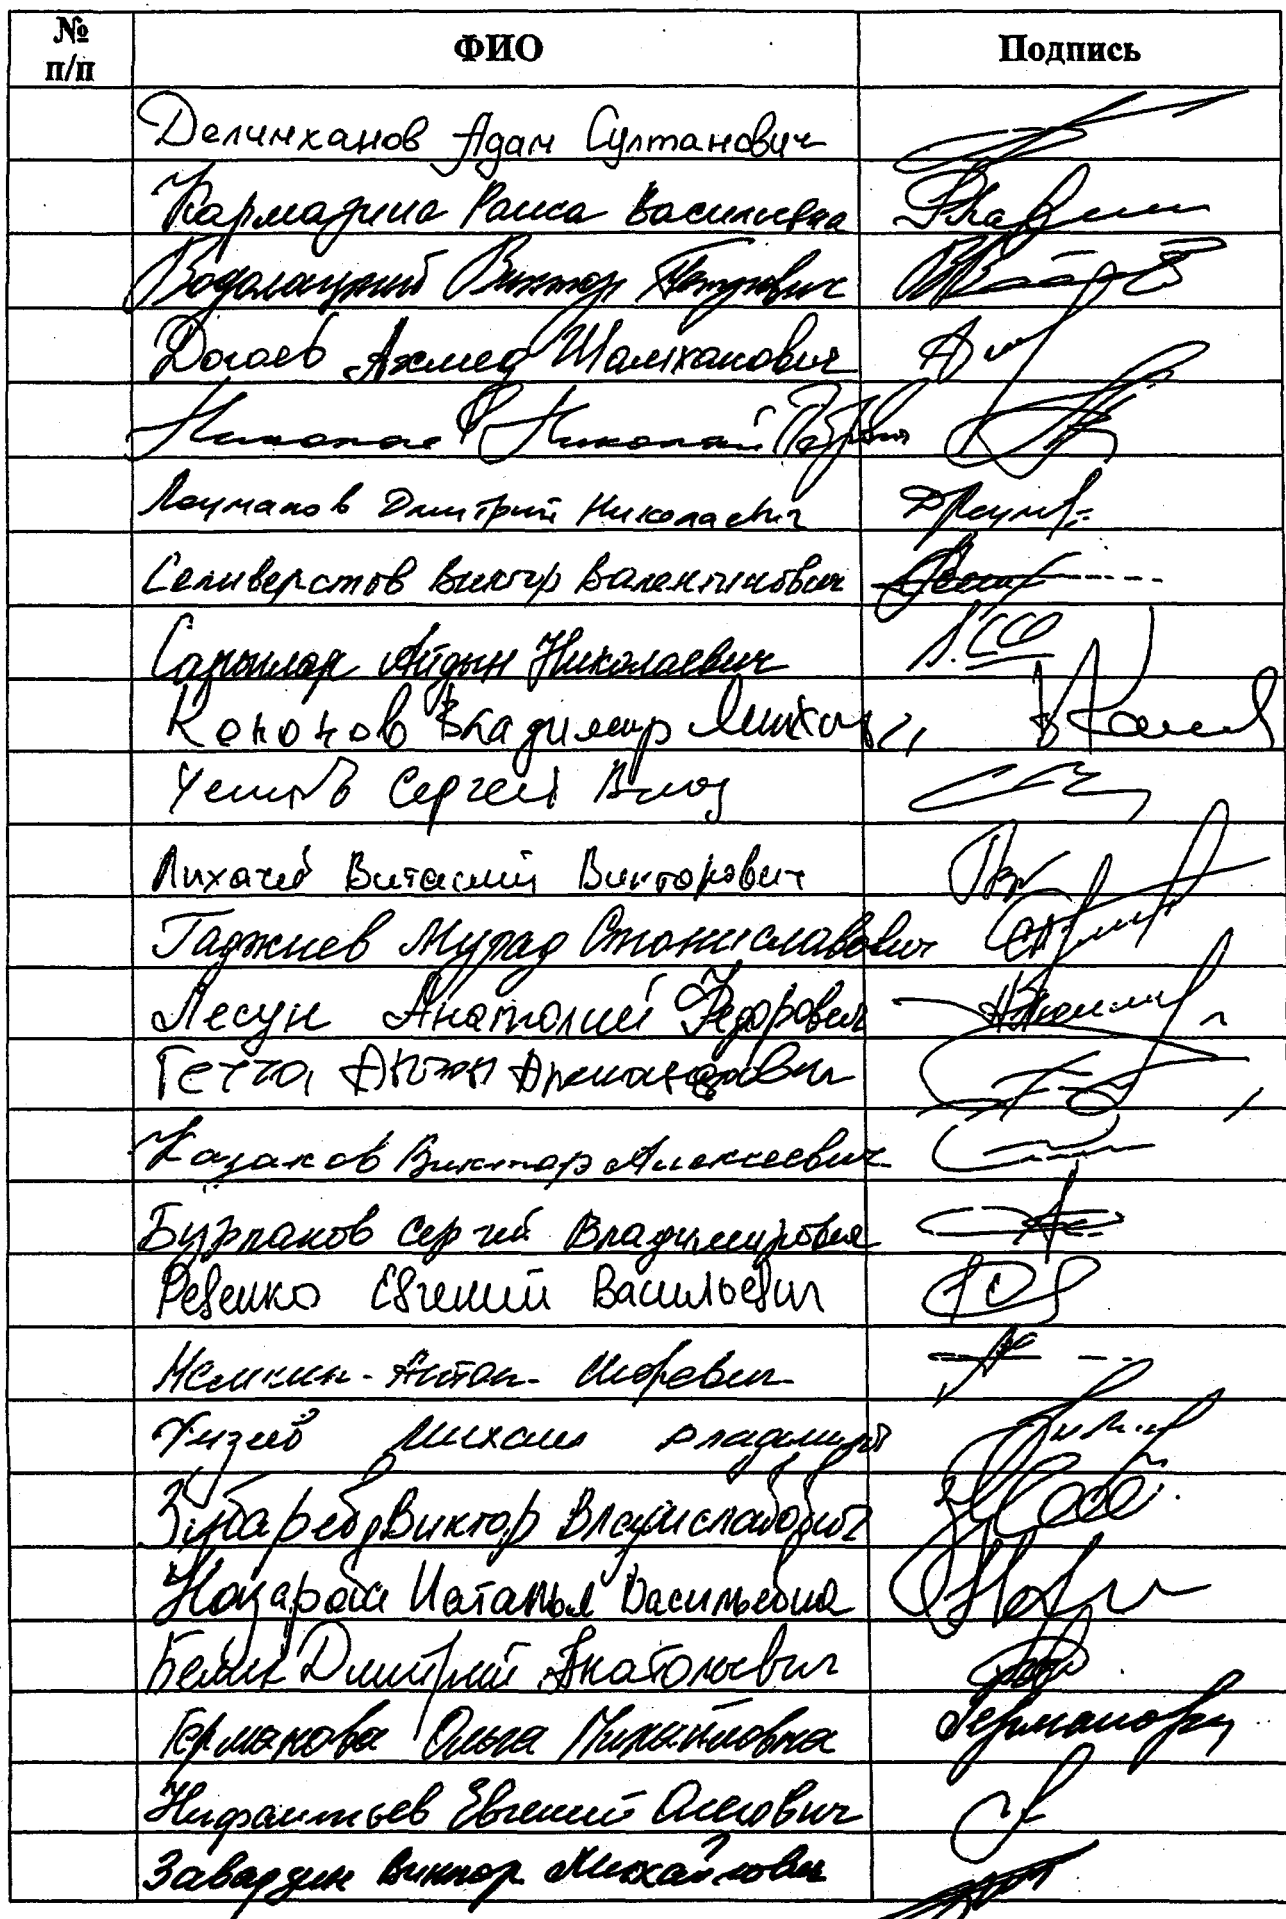 № п/п ФИО Подпись
Делимханов Адам Султанович
Кармазина Раиса Васильевна
Водолацкий Виктор Петрович
Догаев Ахмед Шамханович
Николаев Николай Петрович
Лоцманов Дмитрий Николаевич
Селиверстов Виктор Валентинович
Сарыглар Айдын Николаевич
Кононов Владимир
Сергей
Лихачев Виталий Викторович
Гаджиев Мурад Станиславович
Лесун Анатолий Федорович
Гетта Антон Армандович
Казаков Виктор Алексеевич
Бурлаков Сергей Владимирович
Ревенко Евгений Васильевич
Немкин Антон Игоревич
Михаил
Зубарев Виктор Владиславович
Назарова Наталья Васильевна
Белик Дмитрий Анатольевич
Германова Ольга Михайловна Германова
Нифантьев Евгений Олегович
Завардин Виктор Михайлович